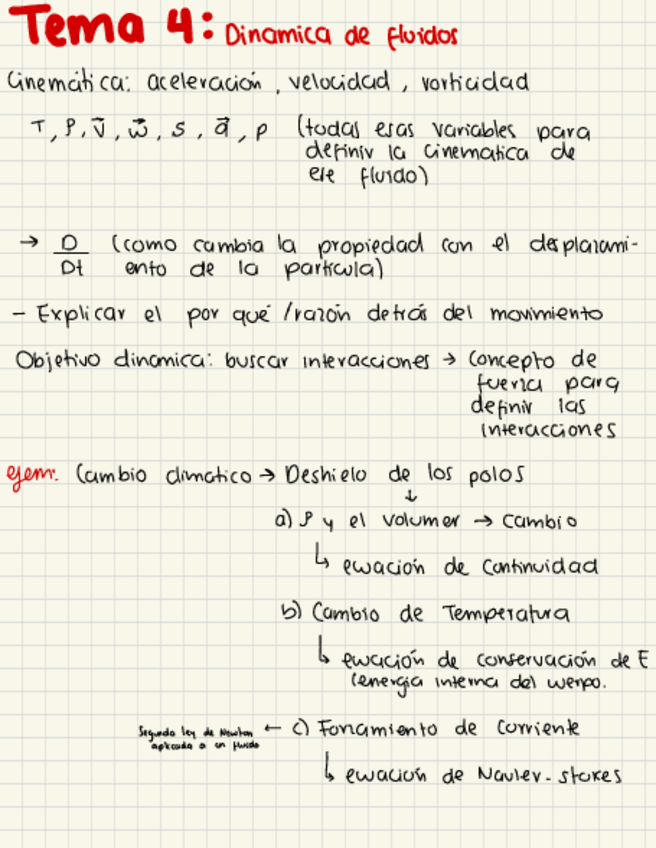 Tema 4: Dinamica de fluidos
Cinemática: aceleración, velocidad, vorticidad
T, ρ, v⃗, w⃗, s, a⃗, p (todas esas variables para
definir la cinematica de
ese fluido)
→ D/Dt (como cambia la propiedad con el desplazami-
ento de la particula)
- Explicar el por qué /razón detrás del movimiento
Objetivo dinamica: buscar interacciones → Concepto de
fuerza para
definir las
interacciones
ejem: Cambio climatico → Deshielo de los polos
↓
a) ρ y el volumen → Cambio
↳ ecuación de Continuidad
b) Cambio de Temperatura
↳ ecuación de conservación de E
(energia interna del cuerpo.
Segunda ley de Newton ← c) Forzamiento de Corriente
aplicada a un fluido
↳ ecuación de Navier-stokes